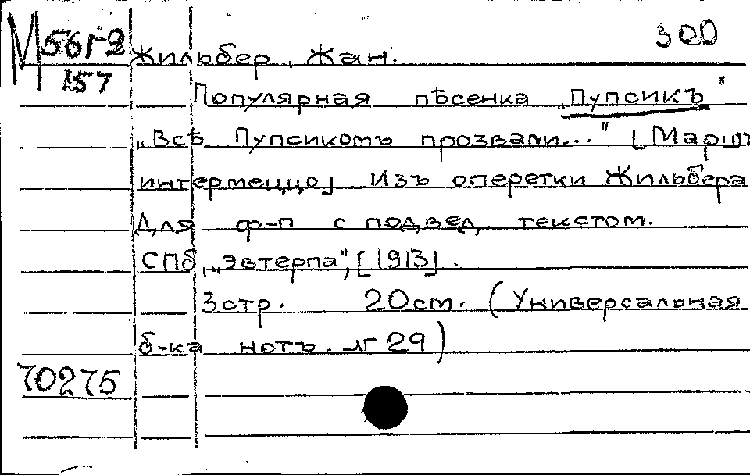 М 56г-2 300
157
Жильбер, Жан.
Популярная пѣсенка „Пупсикъ"
„Всѣ Пупсикомъ прозвали..." [Марш
интермеццо] Изъ оперетки Жильбера
Для ф-п с подвед. текстом.
СПб, „Эвтерпа", [1913].
3 стр. 20 см. (Универсальная
б-ка нотъ. № 29)
70275